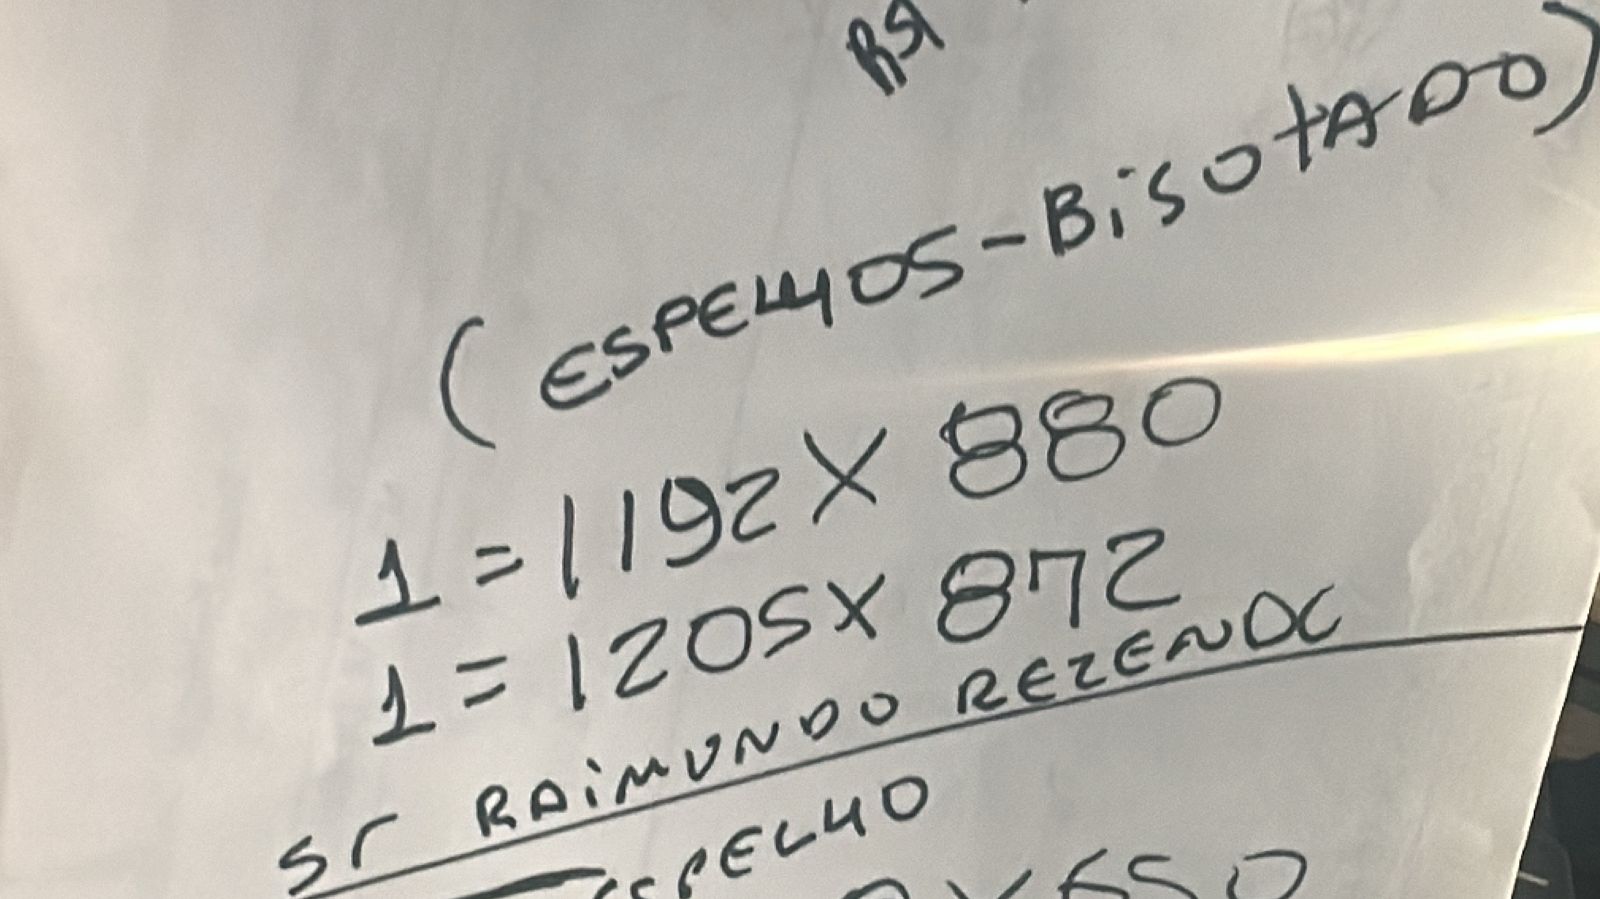 (ESPELHOS-BiSOTADO)
1 = 1192 X 880
1 = 1205 X 872
Sr RAiMUNDO REZENDE
ESPELHO
X 650